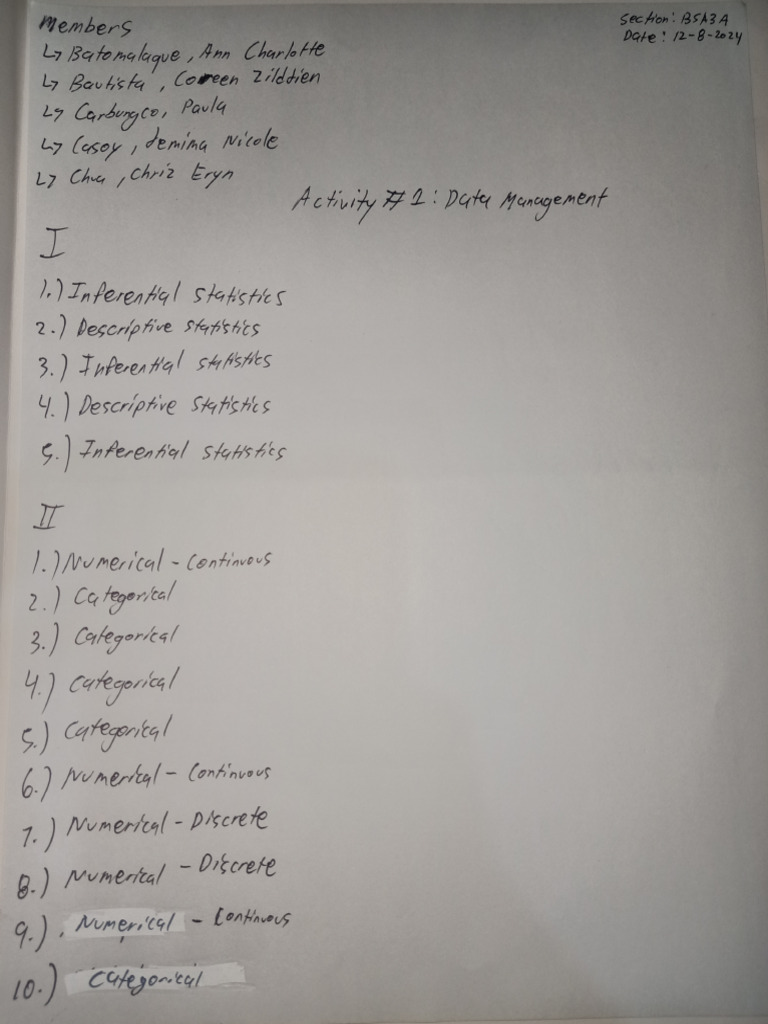 Members
Section: BSA3A
Date: 12-8-2024
↳ Batomalaque, Ann Charlotte
↳ Bautista, Coreen Zilddien
↳ Carbungco, Paula
↳ Casoy, Jemima Nicole
↳ Chua, Chriz Eryn
Activity # 1: Data Management
I
1.) Inferential statistics
2.) Descriptive statistics
3.) Inferential statistics
4.) Descriptive Statistics
5.) Inferential statistics
II
1.) Numerical - Continuous
2.) Categorical
3.) Categorical
4.) Categorical
5.) Categorical
6.) Numerical - Continuous
7.) Numerical - Discrete
8.) Numerical - Discrete
9.) Numerical - Continuous
10.) Categorical